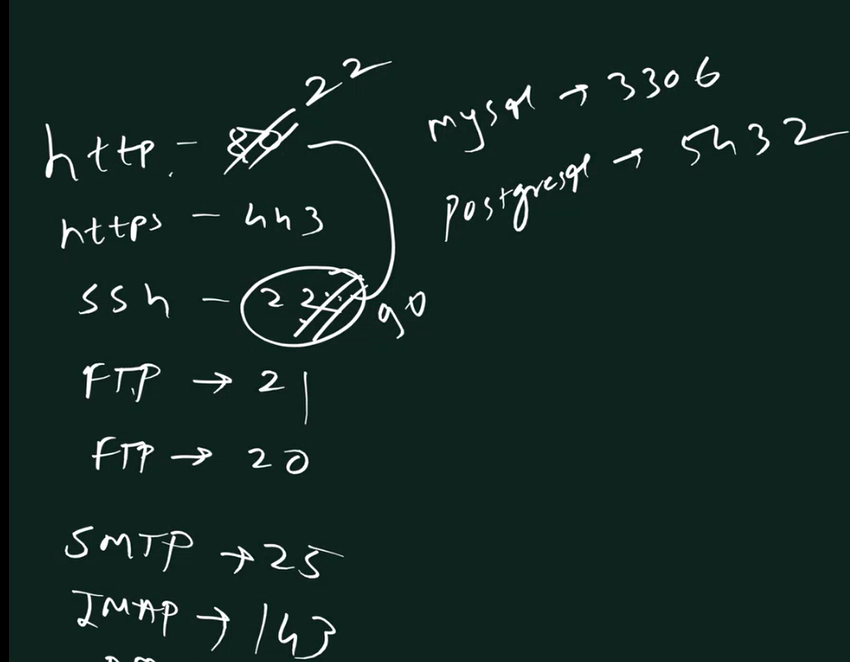 http - 80 22
https - 443
ssh - 22 90
FTP → 21
FTP → 20
SMTP → 25
IMAP → 143
mysql → 3306
postgresql → 5432